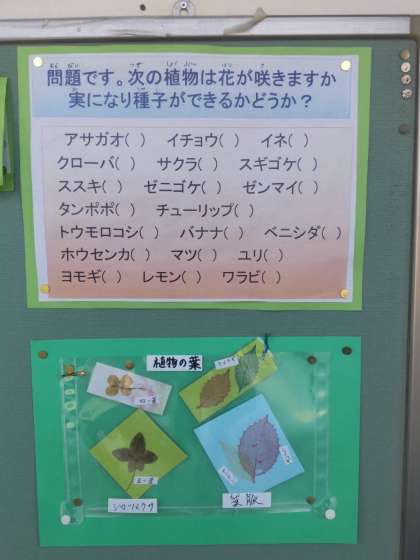 問題です。次の植物は花が咲きますか
実になり種子ができるかどうか？
アサガオ( ) イチョウ( ) イネ( )
クローバ( ) サクラ( ) スギゴケ( )
ススキ( ) ゼニゴケ( ) ゼンマイ( )
タンポポ( ) チューリップ( )
トウモロコシ( ) バナナ( ) ベニシダ( )
ホウセンカ( ) マツ( ) ユリ( )
ヨモギ( ) レモン( ) ワラビ( )
植物の葉
シロツメクサ
葉脈